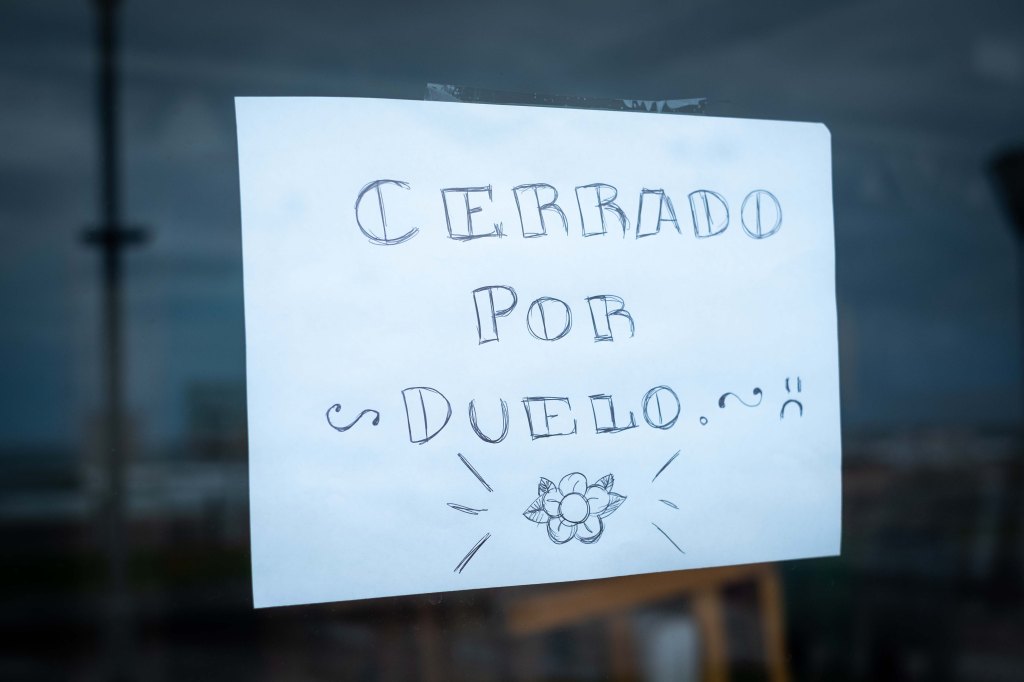 CERRADO
POR
DUELO.